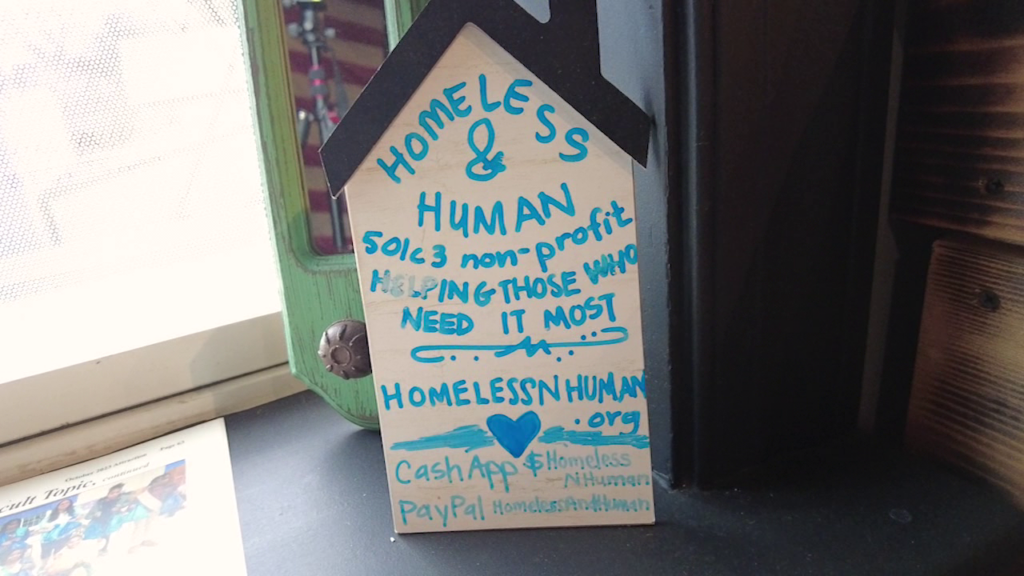 HOMELESS
&
HUMAN
501c3 non-profit
HELPING THOSE WHO
NEED IT MOST
HOMELESSNHUMAN
.org
CashApp $Homeless
NHuman
PayPal HomelessAndHuman
October 2023 Page 63
cult Topic, continued